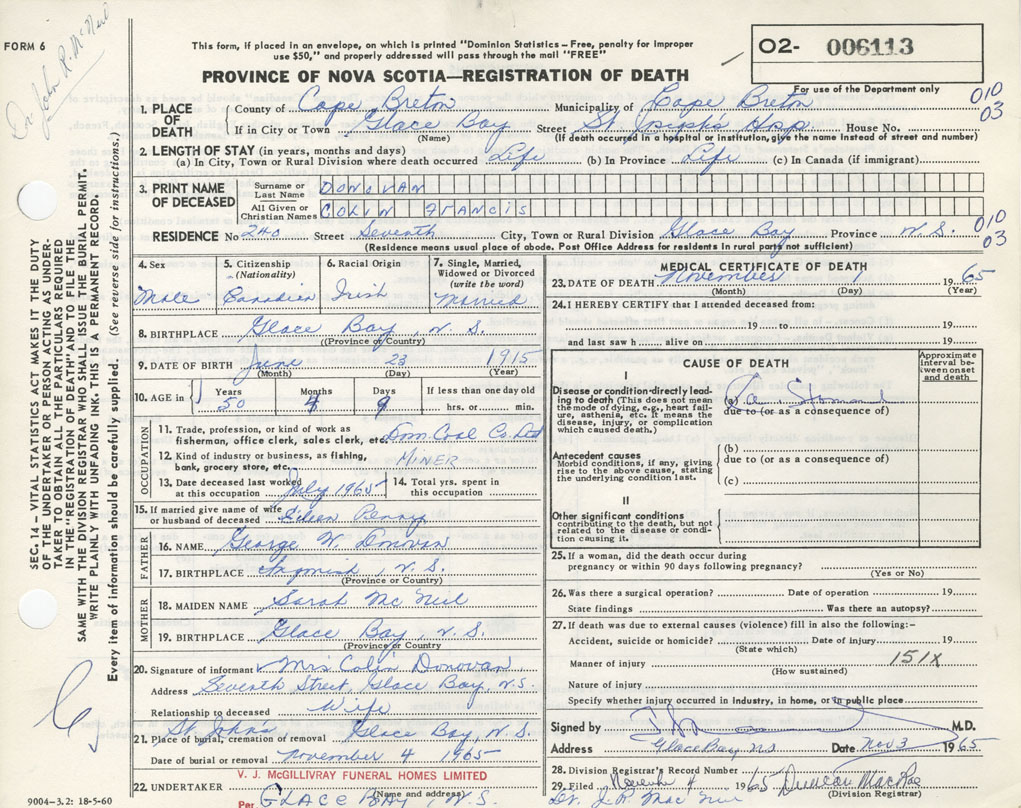 FORM 6
Dr. John R. McNeil
This form, if placed in an envelope, on which is printed "Dominion Statistics – Free, penalty for improper
use $50," and properly addressed will pass through the mail "FREE"
PROVINCE OF NOVA SCOTIA—REGISTRATION OF DEATH
O2- 006113
For use of the Department only
010
03
1. PLACE OF DEATH { County of Cape Breton Municipality of Cape Breton
If in City or Town Glace Bay Street St. Joseph's Hosp House No.
(Name) (If death occurred in a hospital or institution, give the name instead of street and number)
2. LENGTH OF STAY (in years, months and days)
(a) In City, Town or Rural Division where death occurred Life (b) In Province Life (c) In Canada (if immigrant)
3. PRINT NAME OF DECEASED
Surname or Last Name DONOVAN
All Given or Christian Names COLIN FRANCIS
RESIDENCE No 240 Street Seventh City, Town or Rural Division Glace Bay Province N.S.
010
03
(Residence means usual place of abode. Post Office Address for residents in rural parts not sufficient)
4. Sex 5. Citizenship (Nationality) 6. Racial Origin 7. Single, Married, Widowed or Divorced (write the word)
Male Canadian Irish Married
8. BIRTHPLACE Glace Bay, N.S.
(Province or Country)
9. DATE OF BIRTH June 23 1915
(Month) (Day) (Year)
10. AGE in } Years Months Days If less than one day old
50 4 9 hrs. or min.
OCCUPATION
11. Trade, profession, or kind of work as
fisherman, office clerk, sales clerk, etc. Dom. Coal Co. Ltd
12. Kind of industry or business, as fishing,
bank, grocery store, etc. MINER
13. Date deceased last worked at this occupation July 1965 14. Total yrs. spent in this occupation
15. If married give name of wife
or husband of deceased Eileen Penny
FATHER
16. NAME George W. Donovan
17. BIRTHPLACE Ingonish, N.S.
(Province or Country)
MOTHER
18. MAIDEN NAME Sarah Mc Neil
19. BIRTHPLACE Glace Bay, N.S.
(Province or Country
20. Signature of informant Mrs Colin Donovan
Address Seventh Street, Glace Bay, N.S.
Relationship to deceased Wife
St. John's
21. Place of burial, cremation of removal Glace Bay, N.S.
Date of burial or removal November 4 1965
V. J. McGILLIVRAY FUNERAL HOMES LIMITED
22. UNDERTAKER
(Name and address)
Per GLACE BAY, N.S.
9004-3.2: 18-5-60
MEDICAL CERTIFICATE OF DEATH
23. DATE OF DEATH November 1 1965
(Month) (Day) (Year)
24. I HEREBY CERTIFY that I attended deceased from:
19 to 19
and last saw h alive on 19
CAUSE OF DEATH
Approximate interval between onset and death
I
Disease or condition directly leading to death (This does not mean the mode of dying, e.g., heart failure, asthenia, etc. It means the disease, injury, or complication which caused death.)
(a) Ca. Stomach
due to (or as a consequence of)
Antecedent causes
Morbid conditions, if any, giving rise to the above cause, stating the underlying condition last.
(b)
due to (or as a consequence of)
(c)
II
Other significant conditions
contributing to the death, but not related to the disease or condition causing it.
25. If a woman, did the death occur during
pregnancy or within 90 days following pregnancy?
(Yes or No)
26. Was there a surgical operation? Date of operation 19
State findings Was there an autopsy?
27. If death was due to external causes (violence) fill in also the following:–
Accident, suicide or homicide? Date of injury 19
(State which)
Manner of injury 151X
(How sustained)
Nature of injury
Specify whether injury occurred in industry, in home, or in public place
Signed by M.D.
Address Glace Bay NS Date Nov 3 1965
28. Division Registrar's Record Number
29. Filed November 4 1965 Duncan MacRae
(Division Registrar)
Dr. J.R. Mac Neil
SEC. 14 – VITAL STATISTICS ACT MAKES IT THE DUTY
OF THE UNDERTAKER OR PERSON ACTING AS UNDER-
TAKER TO OBTAIN ALL THE PARTICULARS REQUIRED
IN THE "REGISTRATION OF DEATH" AND TO FILE THE
SAME WITH THE DIVISION REGISTRAR WHO SHALL ISSUE THE BURIAL PERMIT.
WRITE PLAINLY WITH UNFADING INK. THIS IS A PERMANENT RECORD.
Every item of information should be carefully supplied. (See reverse side for instructions.)